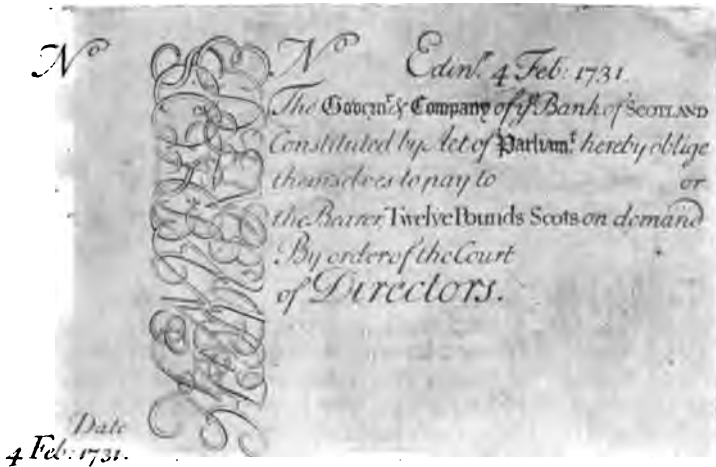 Nº
Nº Edinʳ. 4 Feb: 1731.
The Governʳ & Company of yᵉ Bank of SCOTLAND
Constituted by Act of Parliamᵗ. hereby oblige
themselves to pay to or
the Bearer, Twelve Pounds Scots on demand
By order of the Court
of Directors.
Date
4 Feb: 1731.